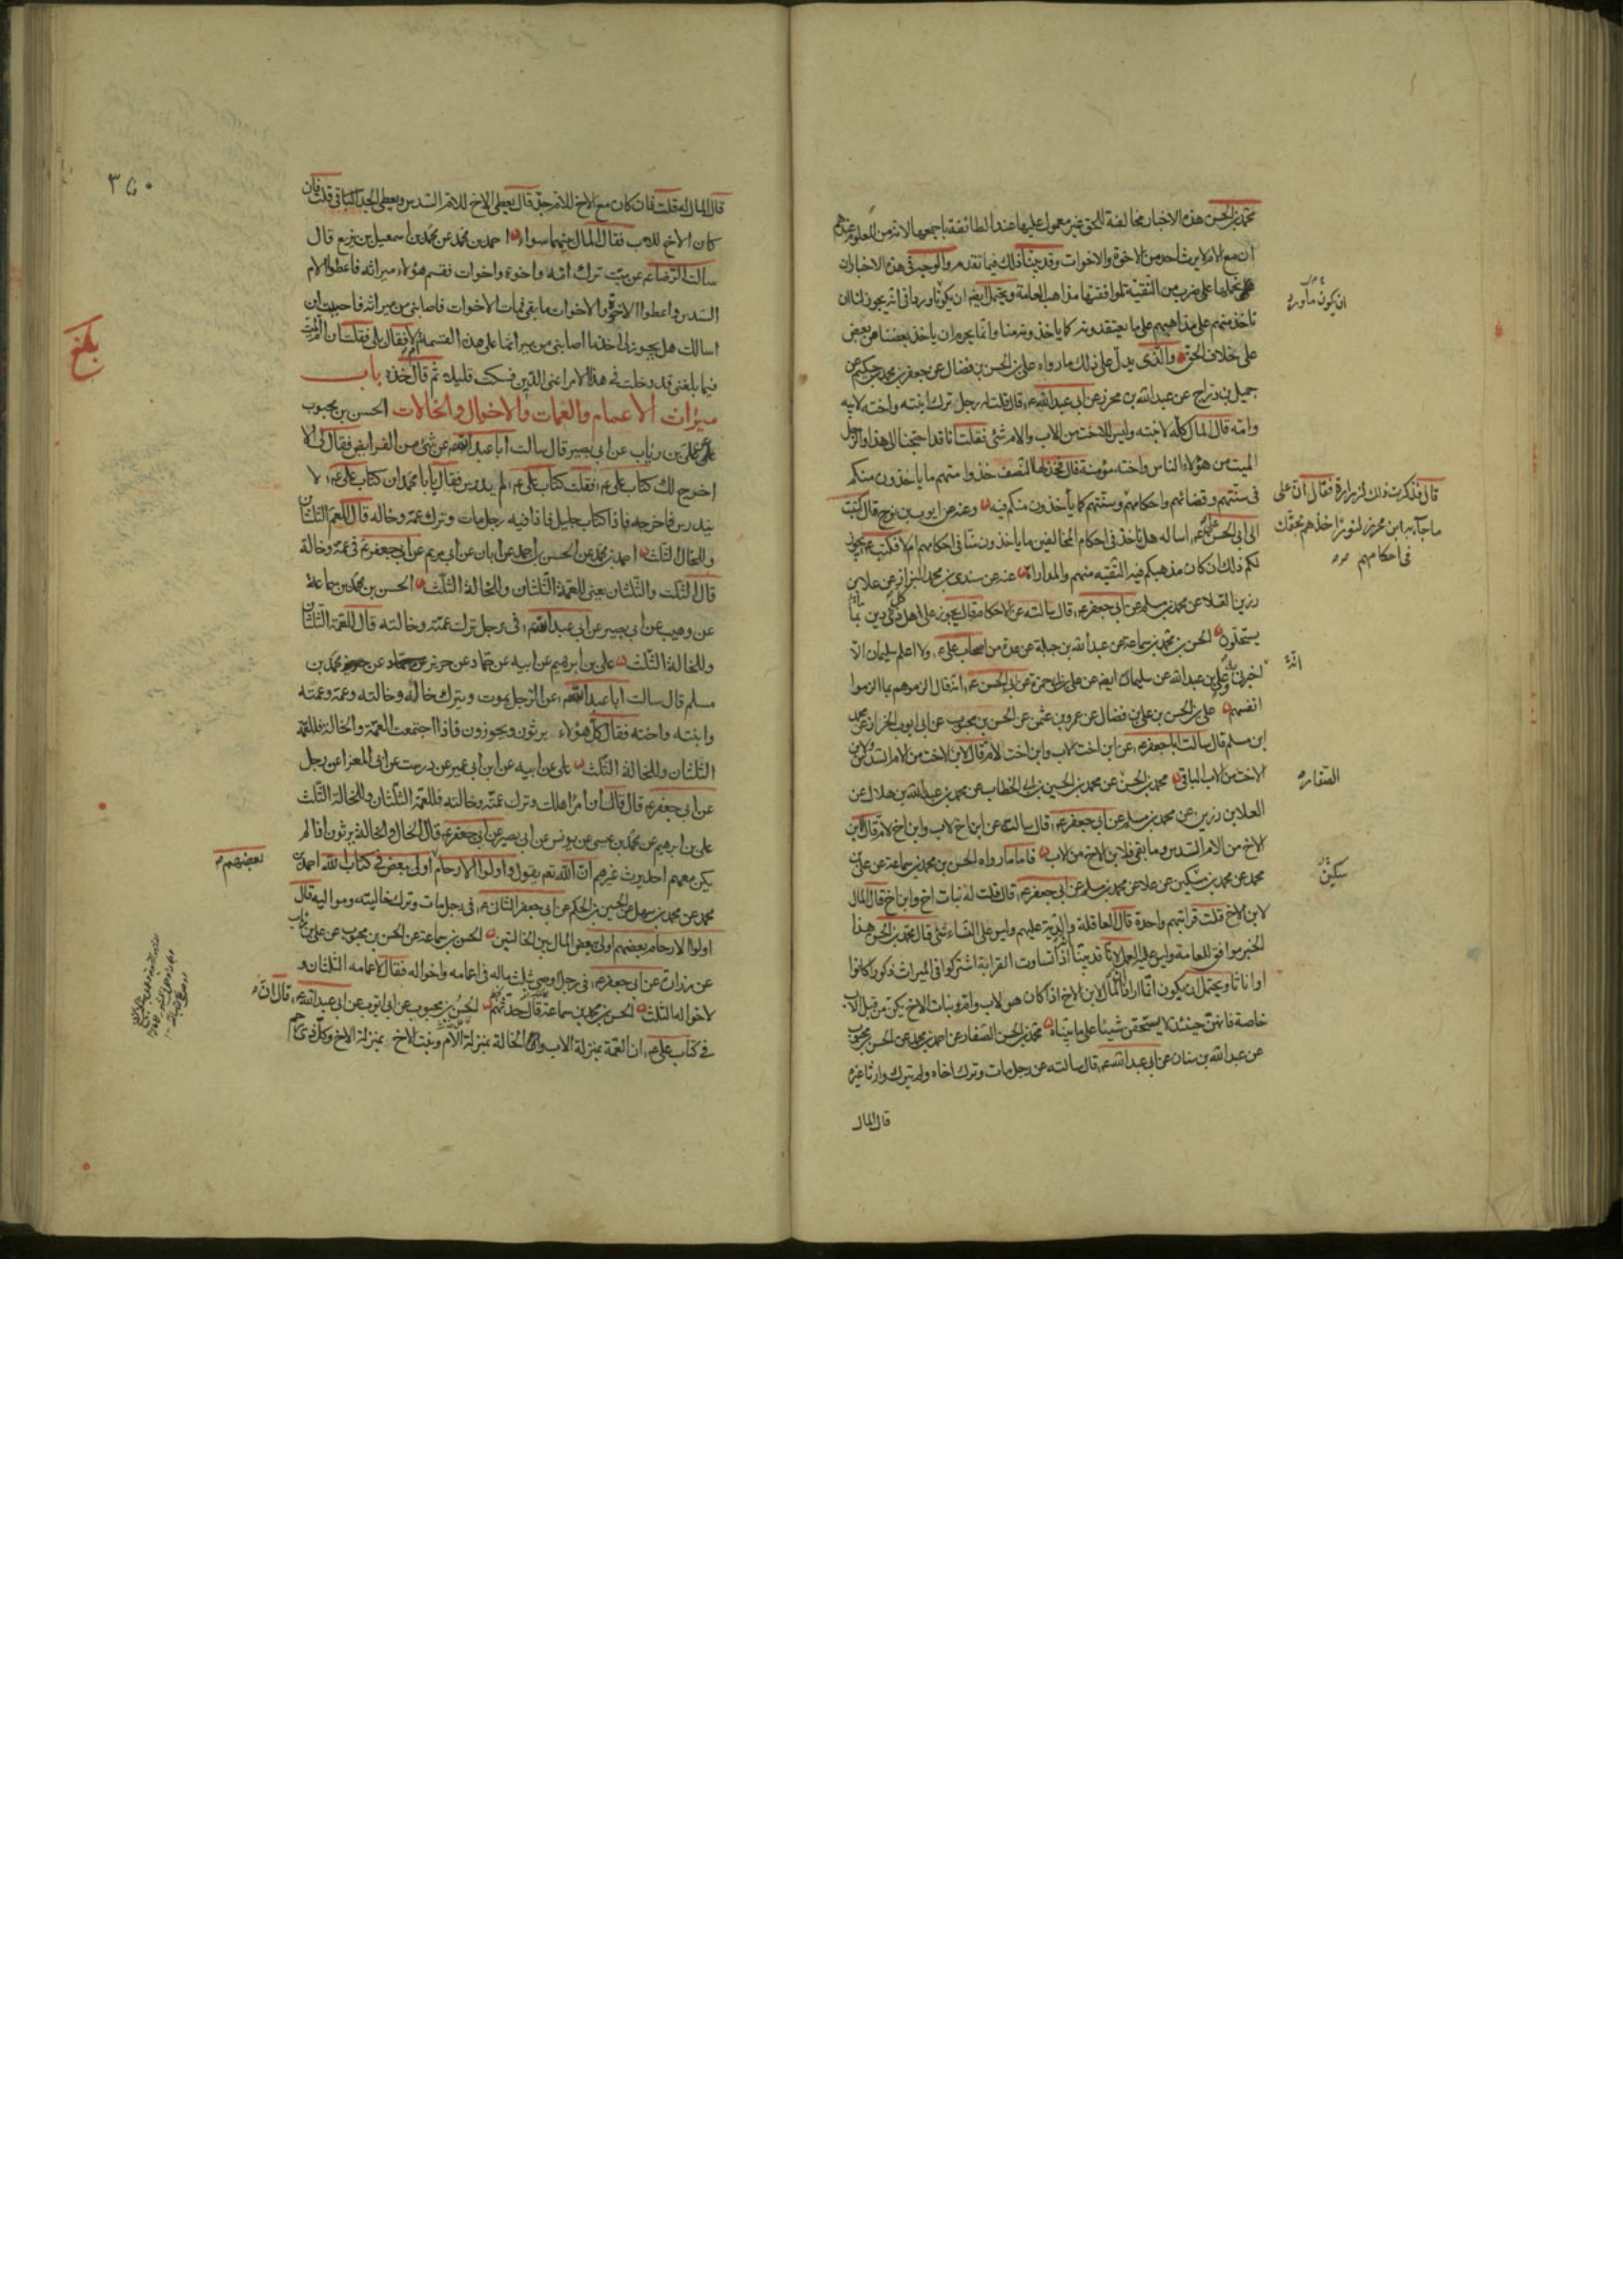 محمد بن الحسن هذه الاخبار مخالفة للحق غير معمول عليها عند الطائفة باجمعها لانه من المعلوم عندهم
ان مع الام لا يرث احد من الاخوة والاخوات وقد بينا ذلك فيما تقدم والوجه في هذه الاخبار ان
نحملها على ضرب من التقية لموافقتها مذاهب العامة ويحتمل ايضا ان يكون ما ورد انه يجوز لنا ان
ناخذ منهم على مذاهبهم على ما يعتقدونه كما ياخذونه منا وانما يحرم ان ياخذ بعضنا من بعض
على خلاف الحق والذي يدل على ذلك ما رواه علي بن الحسن بن فضال عن جعفر بن محمد بن حكيم عن
جميل بن دراج عن عبد الله بن محرز عن ابي عبد الله ع قال قلت له رجل ترك ابنته واخته لابيه
وامه قال المال كله لابنته وليس للاخت من الاب والام شئ فقلت انا قد احتجنا الى هذا والرجل
الميت من هؤلاء الناس واخته مؤمنة قال فخذ لها النصف خذوا منهم ما ياخذون منكم
في سنتهم وقضائهم واحكامهم وسنتهم كما يأخذون منكم فيه وعنه عن ايوب بن نوح قال كتبت
الى ابي الحسن ع اساله هل ناخذ في احكام المخالفين ما ياخذون منا في احكامهم ام لا فكتب ع يجوز
لكم ذلك ان كان مذهبكم فيه التقية منهم والمداراة عنه عن سندي بن محمد البزاز عن علا بن
رزين القلا عن محمد بن مسلم عن ابي جعفر ع قال سالته عن الاحكام قال يجوز على اهل كل ذي دين بما
يستحلون الحسن بن محمد بن سماعة عن عبد الله بن جبلة عن عدة من اصحاب علي ولا اعلم سليمان الا
اخبرني به وعلي بن عبد الله عن سليمان ايضا عن علي بن ابي حمزة عن ابي الحسن ع انه قال الزموهم بما الزموا
انفسهم علي بن الحسن بن علي بن فضال عن عمرو بن عثمن عن الحسن بن محبوب عن ابي ايوب الخزاز عن محمد
ابن مسلم قال سالت ابا جعفر ع عن ابن اخت لاب وابن اخت لام قال لابن الاخت من الام السدس ولابن
الاخت من الاب الباقي محمد بن الحسن عن محمد بن الحسين بن ابي الخطاب عن محمد بن عبد الله بن هلال عن
العلا بن رزين عن محمد بن مسلم عن ابي جعفر ع قال سالته عن ابن اخ لاب وابن اخ لام قال لابن
الاخ من الام السدس وما بقي فلابن الاخ من الاب فاما ما رواه الحسن بن محمد بن سماعة عن علي بن
محمد عن محمد بن سكين عن علا عن محمد بن مسلم عن ابي جعفر ع قال قلت له بنات اخ وابن اخ قال المال
لابن الاخ قلت قرابتهم واحدة قال العاقلة والدية عليهم وليس على النساء شئ قال محمد بن الحسن هذا
الخبر موافق للعامة وليس عليه العمل لانا قد بينا اذا تساوت القرابة اشتركوا في الميراث ذكورا كانوا
او اناثا ويحتمل ان يكون انما اراد المال لابن الاخ اذا كان هو لاب وام وبنات الاخ يكن من قبل الاب
خاصة فانهن حينئذ لا يستحقن شيئا على ما بيناه محمد بن الحسن الصفار عن احمد بن محمد عن الحسن بن محبوب
عن عبد الله بن سنان عن ابي عبد الله ع قال سالته عن رجل مات وترك اخاه ولم يترك وارثا غيره
قال المال
ان يكون ما ورد
قال فذكرت ذلك لزرارة فقال ان على
ما جاء به ابن محرز لنورا خذهم بحقك
في احكامهم
انه
الصفار
سكين
٣٥٠
قال المال له قلت فان كان مع الاخ للام جد قال يعطى الاخ للام السدس ويعطى الجد الباقي قلت فان
كان الاخ للاب فقال المال بينهما سواء احمد بن محمد عن محمد بن اسمعيل بن بزيع قال
سالت الرضا ع عن ميت ترك امه واخوة واخوات فقسم هؤلاء ميراثه فاعطوا الام
السدس واعطوا الاخوة والاخوات ما بقي فمات الاخوات فاصابني من ميراثه فاحببت ان
اسالك هل يجوز لي اخذ ما اصابني من ميراثها على هذه القسمة ام لا فقال بلى فقلت ان ام الميت
فيما بلغني قد دخلت في هذا الامر اعني الدين فسكت قليلا ثم قال خذه باب
ميراث الاعمام والعمات والاخوال والخالات الحسن بن محبوب
عن علي بن رياب عن ابي بصير قال سالت ابا عبد الله ع عن شئ من الفرايض فقال لي الا
اخرج لك كتاب علي ع فقلت كتاب علي ع لم يدرس فقال يا ابا محمد ان كتاب علي ع لا
يندرس فاخرجه فاذا كتاب جليل فاذا فيه رجل مات وترك عمه وخاله قال للعم الثلثان
وللخال الثلث احمد بن محمد عن الحسن بن احمد عن ابان عن ابي مريم عن ابي جعفر ع في عمة وخالة
قال الثلث والثلثان يعني للعمة الثلثان وللخالة الثلث الحسن بن محمد بن سماعة
عن وهيب عن ابي بصير عن ابي عبد الله ع في رجل ترك عمته وخالته قال للعمة الثلثان
وللخالة الثلث علي بن ابرهيم عن ابيه عن حماد عن حريز عن محمد بن
مسلم قال سالت ابا عبد الله ع عن الرجل يموت ويترك خاله وخالته وعمه وعمته
وابنته واخته فقال كل هؤلاء يرثون ويحوزون فاذا اجتمعت العمة والخالة فللعمة
الثلثان وللخالة الثلث علي عن ابيه عن ابن ابي عمير عن درست عن ابي المعزا عن رجل
عن ابي جعفر ع قال قال ان امرأ هلك وترك عمته وخالته فللعمة الثلثان وللخالة الثلث
علي بن ابرهيم عن محمد بن عيسى عن يونس عن ابي بصير عن ابي جعفر ع قال الخال والخالة يرثون اذا لم
يكن معهم احد يرث غيرهم ان الله تعالى يقول واولوا الارحام اولى ببعض في كتاب الله احمد بن
محمد عن محمد بن سهل عن الحسين بن الحكم عن ابي جعفر الثاني ع في رجل مات وترك خاليته ومواليه قال
اولوا الارحام بعضهم اولى ببعض المال بين الخالتين الحسن بن سماعة عن الحسن بن محبوب عن علي بن رئاب
عن زرارة عن ابي جعفر ع في رجل اوصى بثلث ماله في اعمامه واخواله فقال لاعمامه الثلثان و
لاخواله الثلث الحسن بن محمد بن سماعة قال حدثهم الحسن بن محبوب عن ابي ايوب عن ابي عبد الله ع قال ان
في كتاب علي ع ان العمة بمنزلة الاب والخالة بمنزلة الام وبنت الاخ بمنزلة الاخ وكل ذي رحم
بلغ
بعضهم